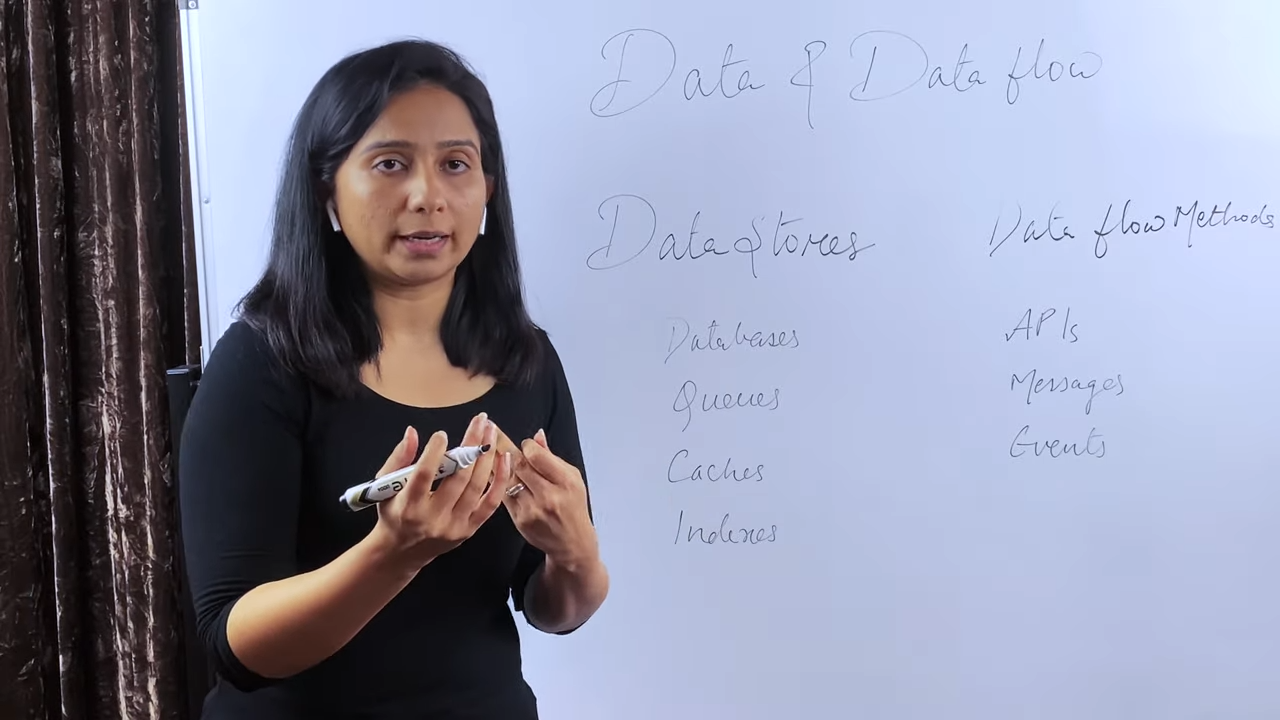 Data & Data flow
Data Stores
Databases
Queues
Caches
Indexes
Data flow Methods
APIs
Messages
Events